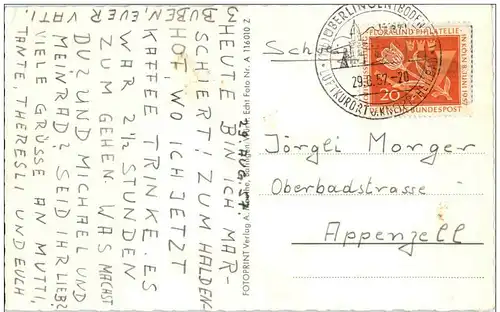 29. AUG. 57
3 HEUTE BIN ICH MAR-
SCHIERT! ZUM HALDEN-
HOF, WO ICH JETZT
KAFFEE TRINKE. ES
WAR 2½ STUNDEN
ZUM GEHEN. WAS MACHST
DU? UND MICHAEL UND
MEINRAD? SEID IHR LIEB?
VIELE GRÜSSE AN MUTTI,
TANTE, THERESLI UND EUCH
BUBEN, EUER VATI.
FOTOPRINT Verlag A. Echt Foto Nr. A 116010 Z
ÜBERLINGEN (BODEN
29.8.57-20
LUFTKURORT u. KNEIPP
FLORA UND PHILATELIE
IN KÖLN 1957
20
DEUTSCHE BUNDESPOST
Sch
Jörgli Morger
Oberbadstrasse
Appenzell